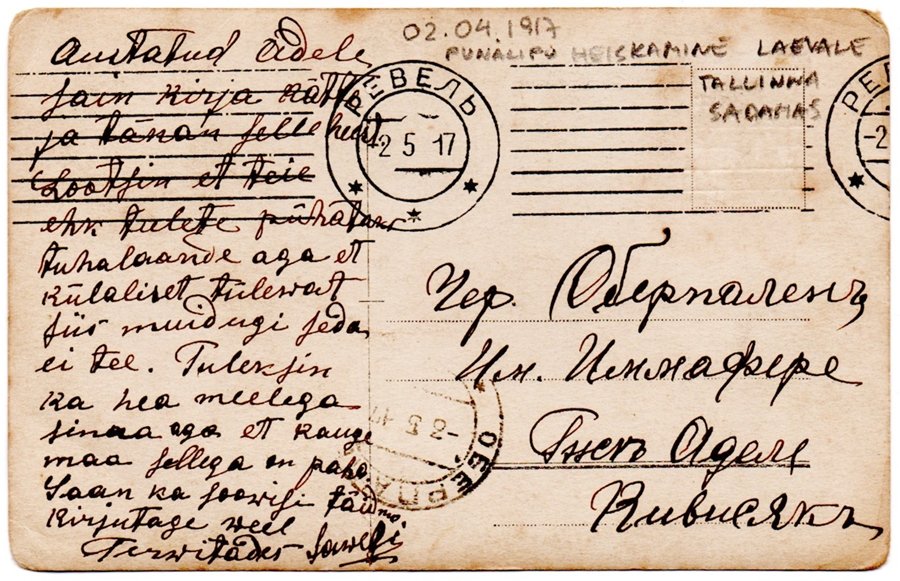 02.04.1917
PUNALIPU HEISKAMINE LAEVALE
TALLINNA
SADAMAS
Austatud Adele
sain kirja kätte
ja tänan selle eest.
Lootsin et teie
ehk tulete pühataks
tuhalaande aga et
külaliset tulewat
siis muidugi seda
ei tee. Tuleksin
ka hea meelega
sinna aga et kauge
maa sellega on paha
Saan ka soowisi
Kirjutage weel
Terwitades
РЕВЕЛЬ
2 5 17
РЕВ
-2
Чер. Оберпаленъ
Им. Иммафере
Гжѣ Аделе
Кивисякъ
-3 5 17
ОБЕРПА